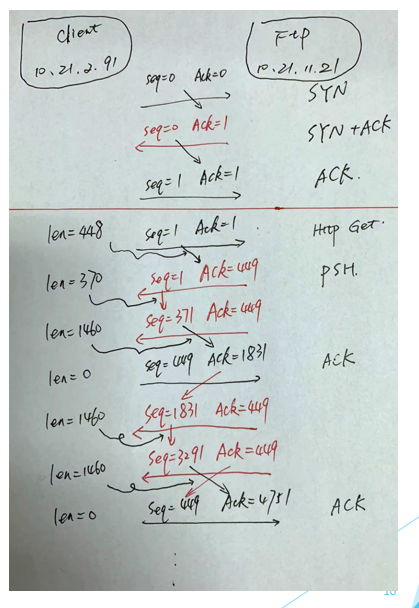 Client
Ftp
10.21.2.91
10.21.11.21
seq=0 Ack=0 SYN
seq=0 Ack=1 SYN+ACK
seq=1 Ack=1 ACK.
len=448 seq=1 Ack=1 Http Get.
len=370 seq=1 Ack=449 PSH.
len=1460 seq=371 Ack=449
len=0 seq=449 Ack=1831 ACK
len=1460 seq=1831 Ack=449
len=1460 seq=3291 Ack=449
len=0 seq=449 Ack=4751 ACK
10